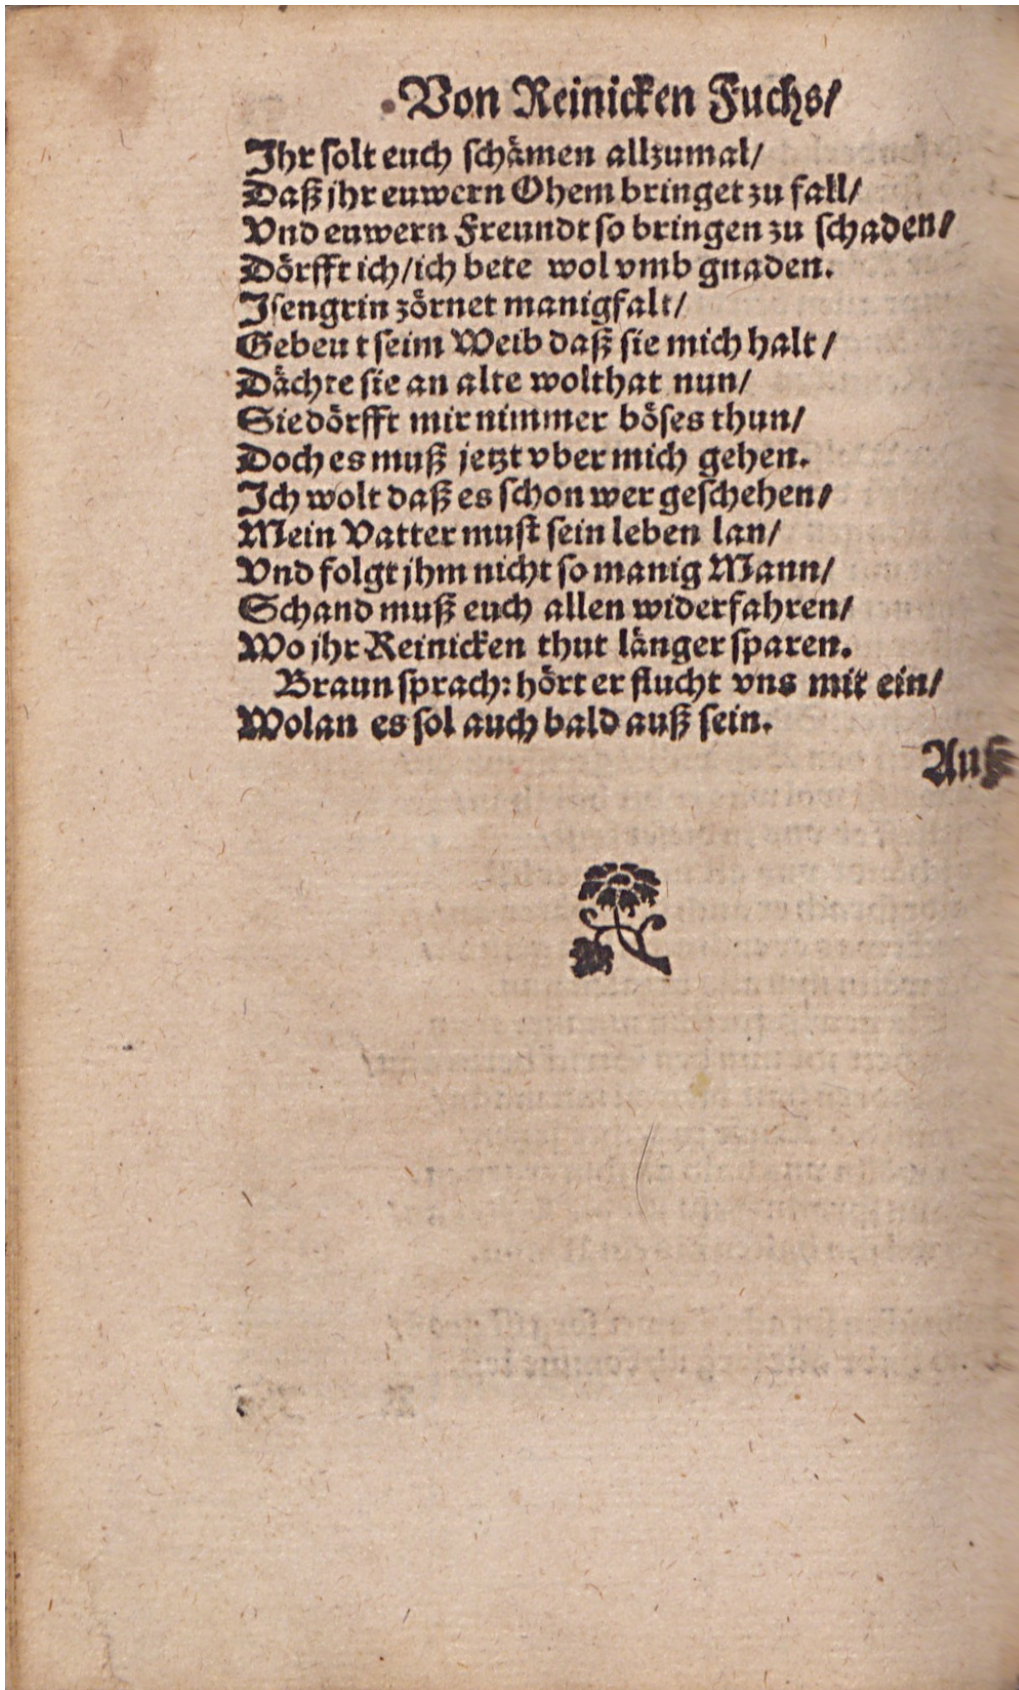 Von Reinicken Fuchs/
Ihr solt euch schämen allzumal/
Daß jhr euwern Ohem bringet zu fall/
Vnd euwern Freundt so bringen zu schaden/
Dörfft ich/ ich bete wol vmb gnaden.
Isengrin zörnet manigfalt/
Gebeut seim Weib daß sie mich halt/
Dächte sie an alte wolthat nun/
Sie dörfft mir nimmer böses thun/
Doch es muß jetzt vber mich gehen.
Ich wolt daß es schon wer geschehen/
Mein Vatter must sein leben lan/
Vnd folgt jhm nicht so manig Mann/
Schand muß euch allen widerfahren/
Wo jhr Reinicken thut länger sparen.
Braun sprach: hört er flucht vns mit ein/
Wolan es sol auch bald auß sein.
Auß